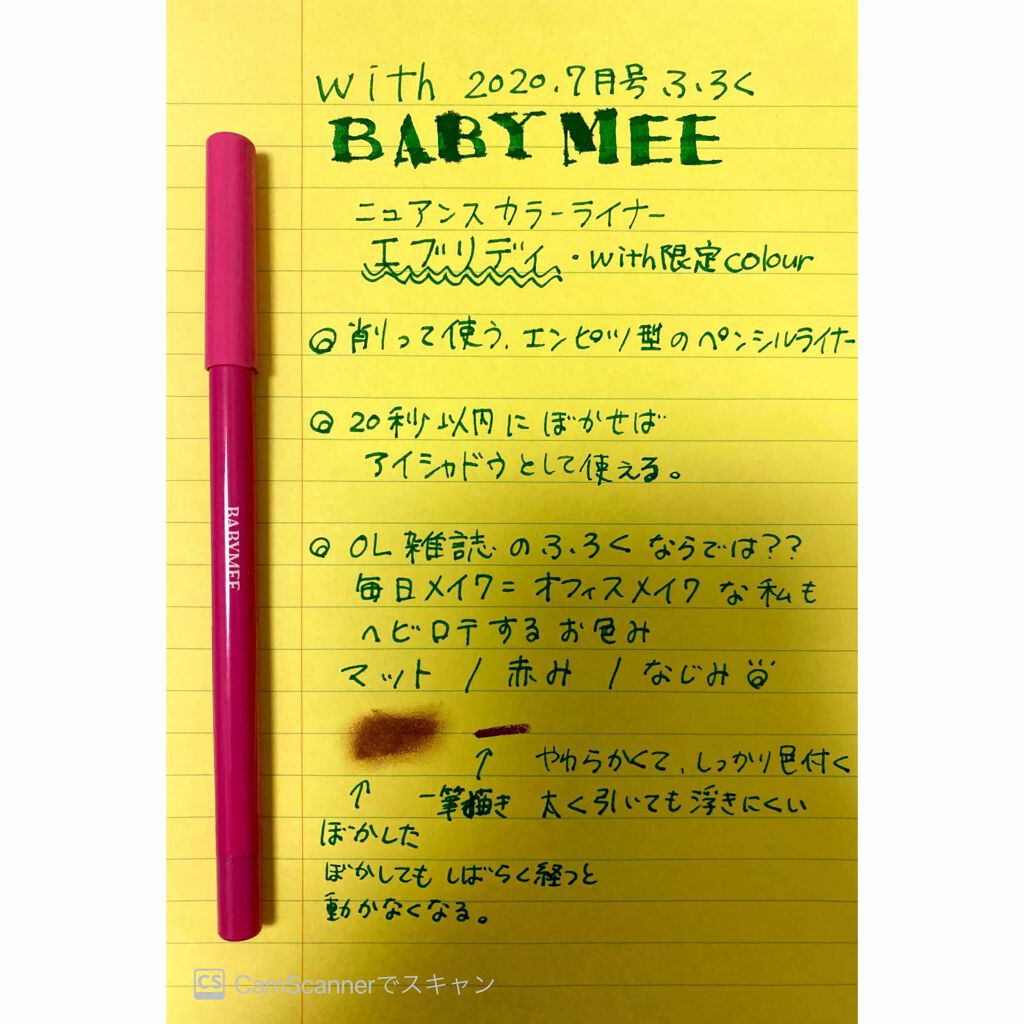 with 2020.7月号ふろく
BABY MEE
ニュアンスカラーライナー
エブリディ・with限定colour
◎ 削って使う、エンピツ型のペンシルライナー
◎ 20秒以内にぼかせば
アイシャドウとして使える。
◎ OL雑誌のふろくならでは??
毎日メイク=オフィスメイクな私も
ヘビロテするお色み
マット / 赤み / なじみ
↑ やわらかくて、しっかり色付く
↑ 一筆描き 太く引いても浮きにくい
ぼかした
ぼかしてもしばらく経つと
動かなくなる。
BABYMEE
CS CamScannerでスキャン